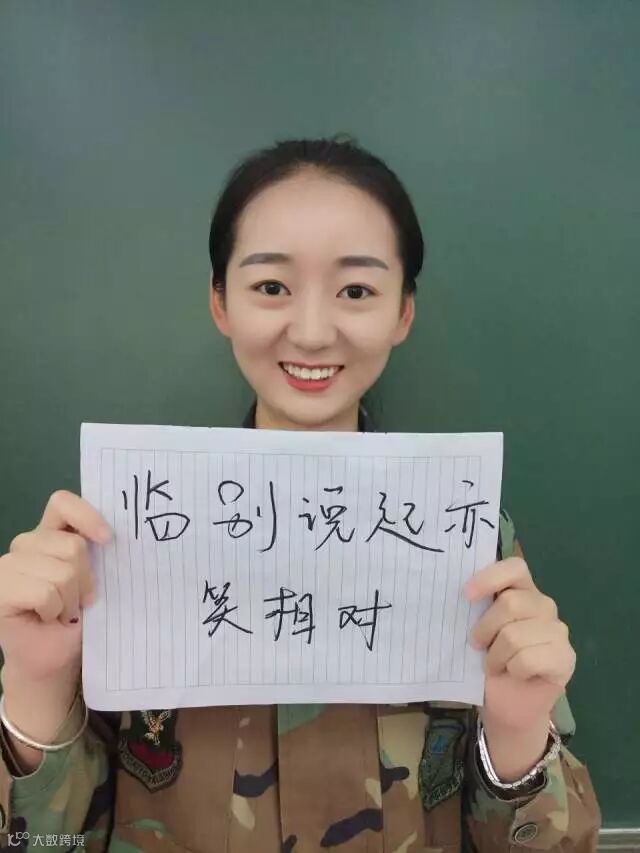 临别说起亦
笑相对
大数跨境